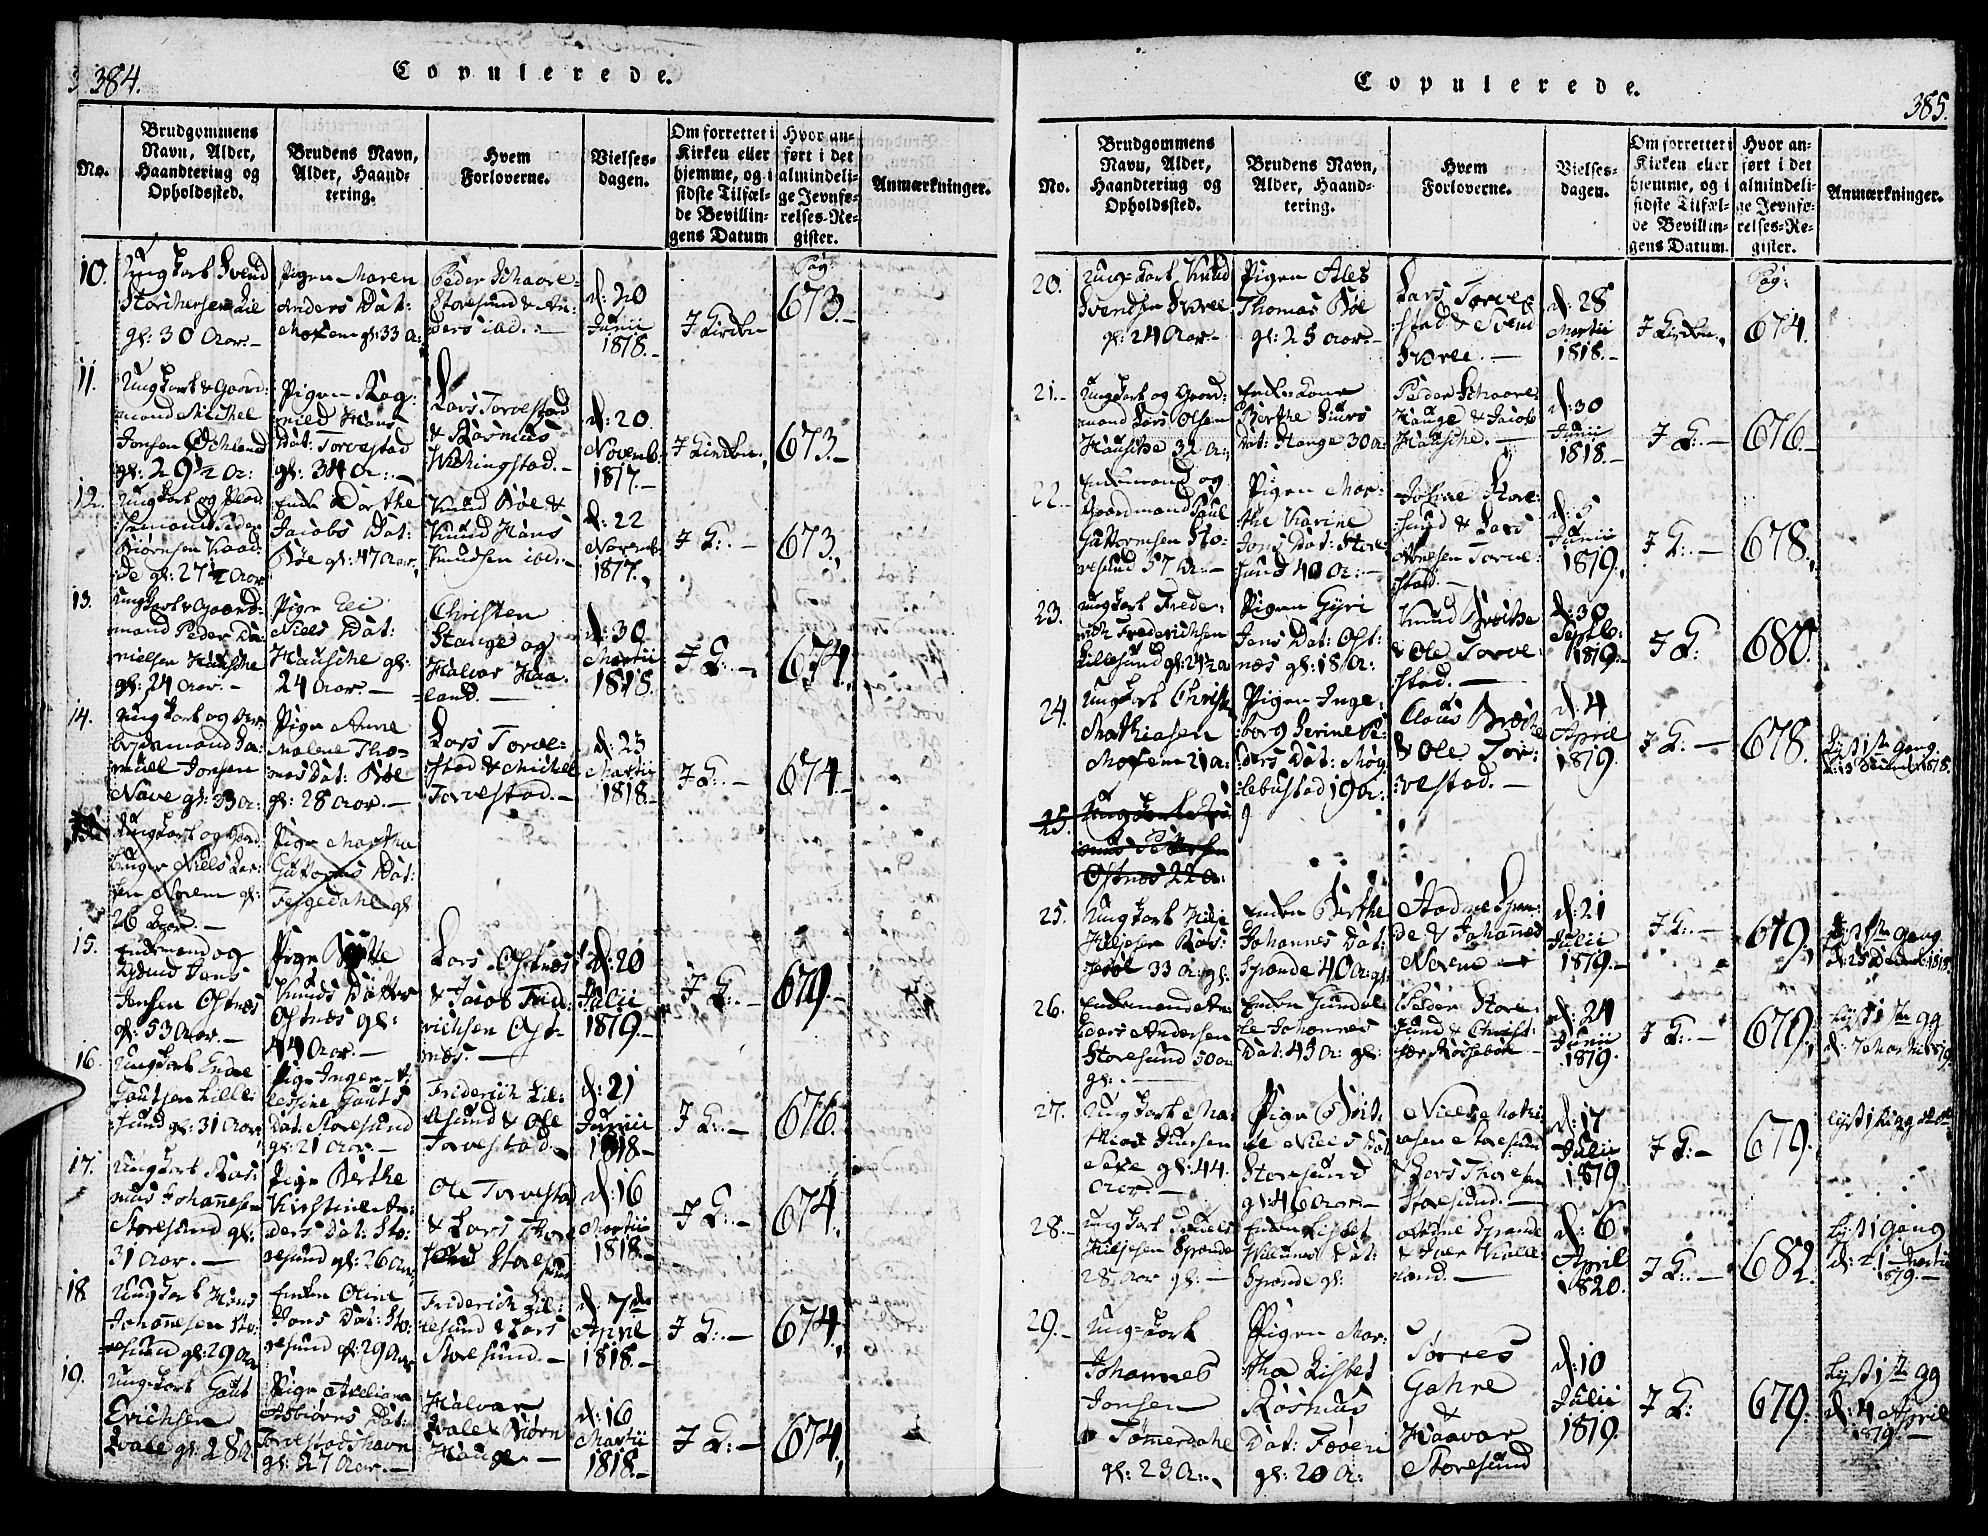 384.
Copulerede.
No.
Brudgommens
Navn, Alder,
Haandtering og
Opholdssted.
Brudens Navn,
Alder, Haand-
tering.
Hvem
Forloverne.
Vielses-
dagen.
Om forrettet i
Kirken eller
hjemme, og i
sidste Tilfæl-
de Bevillin-
gens Datum
Hvor an-
ført i det
almindeli-
ge Jevnfø-
relses-Re-
gister.
Anmærkninger.
10.
Ungkarl Svend
gl: 30 Aar.
Pigen Maren
Anders Dat:
gl: 33 A:
Peder Schaare-
Storesund & An-
ders ibd.
d: 20
Junii
1818.
I Kirken
Pag:
673.
11.
Ungkarl & Gaard-
mand Michel
Jonsen
gl: 29½ A:
Pigen Rag-
nild Hans
Dat: Torvestad
gl: 34 A:
Lars Torvestad
& Rasmus
Wichingstad.
d: 20
Novemb.
1817.
I Kirken
673.
12.
Ungkarl og
Peder
Biørnsen
gl: 27½ Aar
Enke Dorthe
Jacobs Dat:
Bøe gl: 47 Aar.
Knud Bøe &
Knud Hans
Knudsen ibd.
d: 22
Novemb
1817.
I K:
673.
13.
Ungkarl & Gaard-
mand Peder Da-
nielsen Hausche
gl: 24 Aar.
Pige Eli
Niels Dat:
Hausche gl:
24 Aar.
Christen
Stange og
Halvar Haa-
land.
d: 30
Martii
1818.
I K:
674.
14.
Ungkarl og Ar-
beidsmand Sa-
muel Jonsen
Nave gl: 33 A:
Pige Anne
Malene Tho-
mas Dat: Bøe
gl: 28 Aar.
Lars Torve-
stad & Michel
Torvestad.
d: 23
Martii
1818.
I K:
674.
Ungkarl og Gaard-
bruger Niels Lar-
sen Norem gl:
26 Aar.
Pige Martha
Guttorms Dat:
Feigedahl gl
15.
Enkemand og
Jens
Jensen Ostnæs
gl: 53 Aar.
Pige
Knuds Datter
Ostnæs gl:
44 Aar.
Lars Ostnæs
& Jacob Frid-
richsen Ost-
næs.
d: 20
Julii
1819.
I K:
679.
16.
Ungkarl Endre
Gautsen Lille-
sund gl: 31 Aar
Pige Inger
Gauts
Dat: Storesund
gl: 21 Aar.
Friderich Lil-
lesund & Ole
Torvestad.
d: 21
Junii
1818.
I K:
676.
17.
Ungkarl Ras-
mus Johannesen
Storesund gl:
31 Aar.
Pige Berthe
Kirstine An-
ders Dat: Sto-
resund gl: 26 Aar
Ole Torvestad
& Lars Thor
Storesund
d: 16
Martii
1818.
I K:
674.
18
Ungkarl Hans
Johannesen Sto-
resund gl: 29 Aar
Enken Oline
Jons Dat: Sto-
resund gl: 29 Aar
Friderich Lil-
lesund & Lars
Storesund.
d: 7de
April
1818.
I K:
674.
19.
Ungkarl Gaut
Erichsen
Qvale gl: 28 A
Pige Axeliana
Asbiørns Dat:
Torvestads havn
gl: 27 Aar.
Halvar
Qvale & Biørn
Hauge
d: 16
Martii
1818.
I K:
674.
385.
Copulerede.
No.
Brudgommens
Navn, Alder,
Haandtering og
Opholdssted.
Brudens Navn,
Alder, Haand-
tering.
Hvem
Forloverne.
Vielses-
dagen.
Om forrettet i
Kirken eller
hjemme, og i
sidste Tilfæl-
de Bevillin-
gens Datum.
Hvor an-
ført i det
almindeli-
ge Jevnfø-
relses-Re-
gister.
Anmærkninger.
20.
Ung-karl Knud
Svendsen Skree
gl: 24 Aar.
Pigen Ales
Thomas Bøe
gl: 25 Aar.
Lars Torve-
stad & Svend
Skree.
d: 28
Martii
1818.
I Kirken.
Pag:
674.
21.
Ungkarl og Gaard-
mand Lars Olsen
Hausche 32 A:
Enke-Kone
Berthe Siurs
Dat: Hauge 30 A:
Peder Schaare
Hauge & Jacob
Hausche.
d: 30
Junii
1818.
I K:
676.
22.
Enkemand og
Gaardmand Paul
Guttormsen Sto-
resund 57 A:
Pigen Mar-
the Karine
Jons Dat: Store
sund 40 A:
Johne Store-
sund & Lars
Torve-
stad.
d: 5
Junii
1819.
I K:
678.
23.
Ungkarl Frede-
rich Frederichsen
Lillesund gl: 24½ A
Pigen Gyri
Jens Dat: Ost-
næs gl: 18 A:
Knud
& Ole Torve-
stad.
d: 30
Septb:
1819.
I K:
680.
24.
Ungkarl Christ
Mathiasen
21 A:
Pigen Inge-
borg Serine Pe-
ders Dat: Møg-
lebustad 19 A:
Claus
& Ole Tor-
vestad.
d: 4
April
1819.
I K:
678.
Lyst 1ste gang
1818.
25.
Ungkarl
Ostnæs 22 A:
25.
Ungkarl Kilje
Kiljesen
33 A: gl:
Enken Berthe
Johannes Dat:
Spande 40 A: gl:
Aadne Span-
de & Johannes
Norem
d: 21
Julii
1819.
I K:
679.
Lyst 1ste gang
d: 25 Decemb: 1818.
26.
Enkemand An-
ders Andersen
Storesund 50 A:
gl:
Enken
Johannes
Dat: 45 A: gl:
Peder Store-
sund & Christ-
d: 24
Junii
1819.
I K:
679.
Lyst 1ste gg
27.
Ungkarl Ma-
thias
gl: 44
Aar.
Pige Brit-
he Niels Dat
Storesund
gl: 46 Aar.
Niels Mathi-
asen Storesund
& Lars Thoresen
Storesund.
d: 17
Julii
1819
I K:
679.
28.
Ungkarl
Kiljesen Spande
28 Aar gl:
Enken Lisbet
Dat:
Spande gl:
Aadne Spande
& Iver
land.
d: 6
April
1820.
I K:
682.
Lyst 1 gang
d: 21 Martii
1819.
29.
Ung-karl
Johannes
Jonsen
Tømerdahl
gl: 23 A:
Pigen Mar-
tha Lisbet
Rasmus
Dat: Føøen
gl: 20 A:
Torres
Gahre
&
Haavar
Storesund
d: 10
Julii
1819.
I K:
679.
Lyst 1ste gg
d: 4 April
1819.